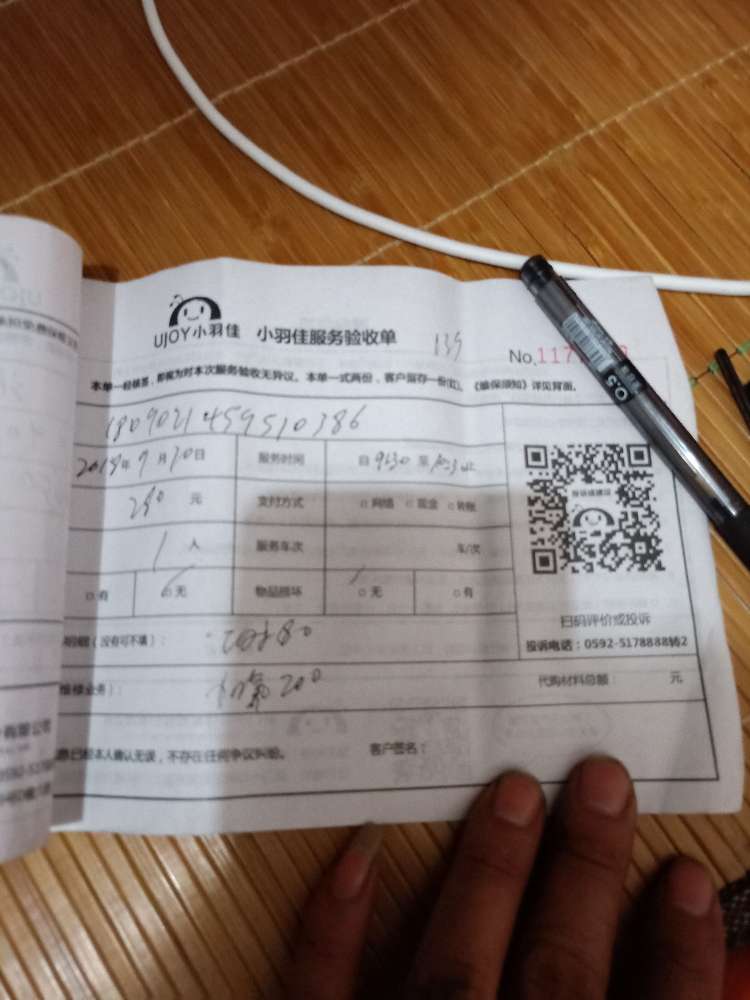 UJOY小羽佳 小羽佳服务验收单 139
No.117
本单一经核签，即视为对本次服务验收无异议。本单一式两份，客户留存一份(红)。《维保须知》详见背面。
1809021459510386
2018年9月30日 服务时间 自 9:30 至
290 元 支付方式 □网络 □现金 □转账
1 人 服务车次 车/次
□有 □无 物品损坏 □无 □有
扫码评价或投诉
投诉电话：0592-5178888转2
(没有可不填)： 80
维修业务)： 加氟200 代购材料总额： 元
息已经本人确认无误，不存在任何争议纠纷。 客户签名：
0.5